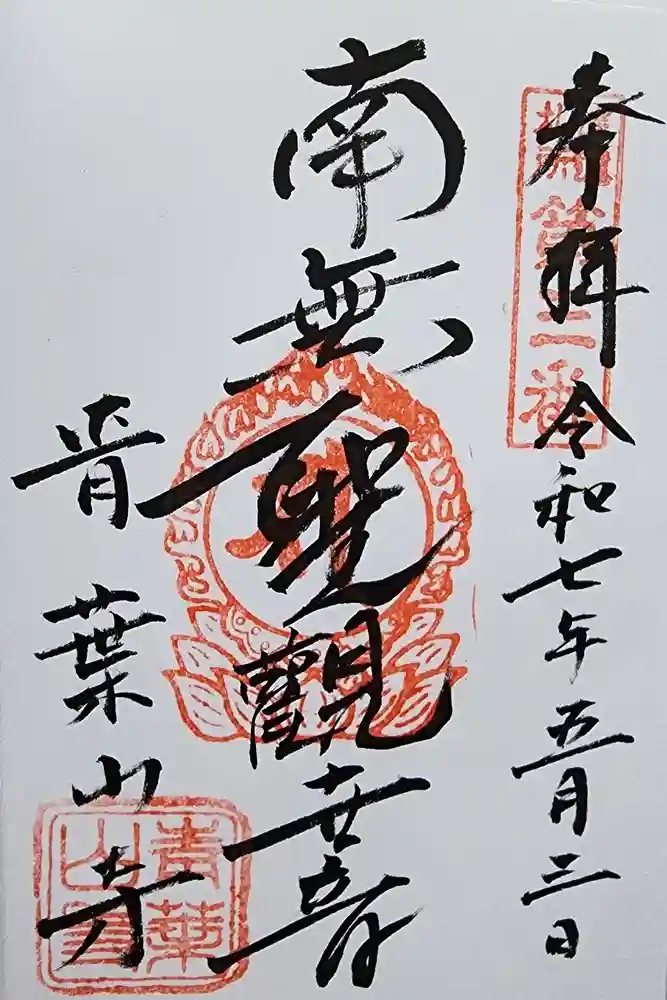 奉拝 令和七年五月三日
第二番
南無聖觀世音
青葉山寺
青葉山